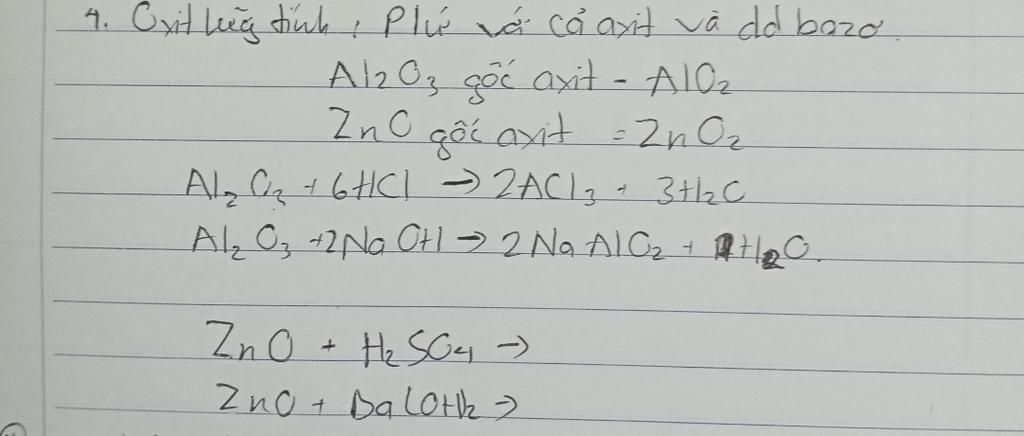 4. Oxit lưỡng tính : Pứ với cả axit và dd bazơ.
Al2O3 gốc axit - AlO2
ZnO gốc axit = ZnO2
Al2O3 + 6HCl → 2ACl3 + 3H2O
Al2O3 + 2NaOH → 2NaAlO2 + 1H2O.
ZnO + H2SO4 →
ZnO + Ba(OH)2 →